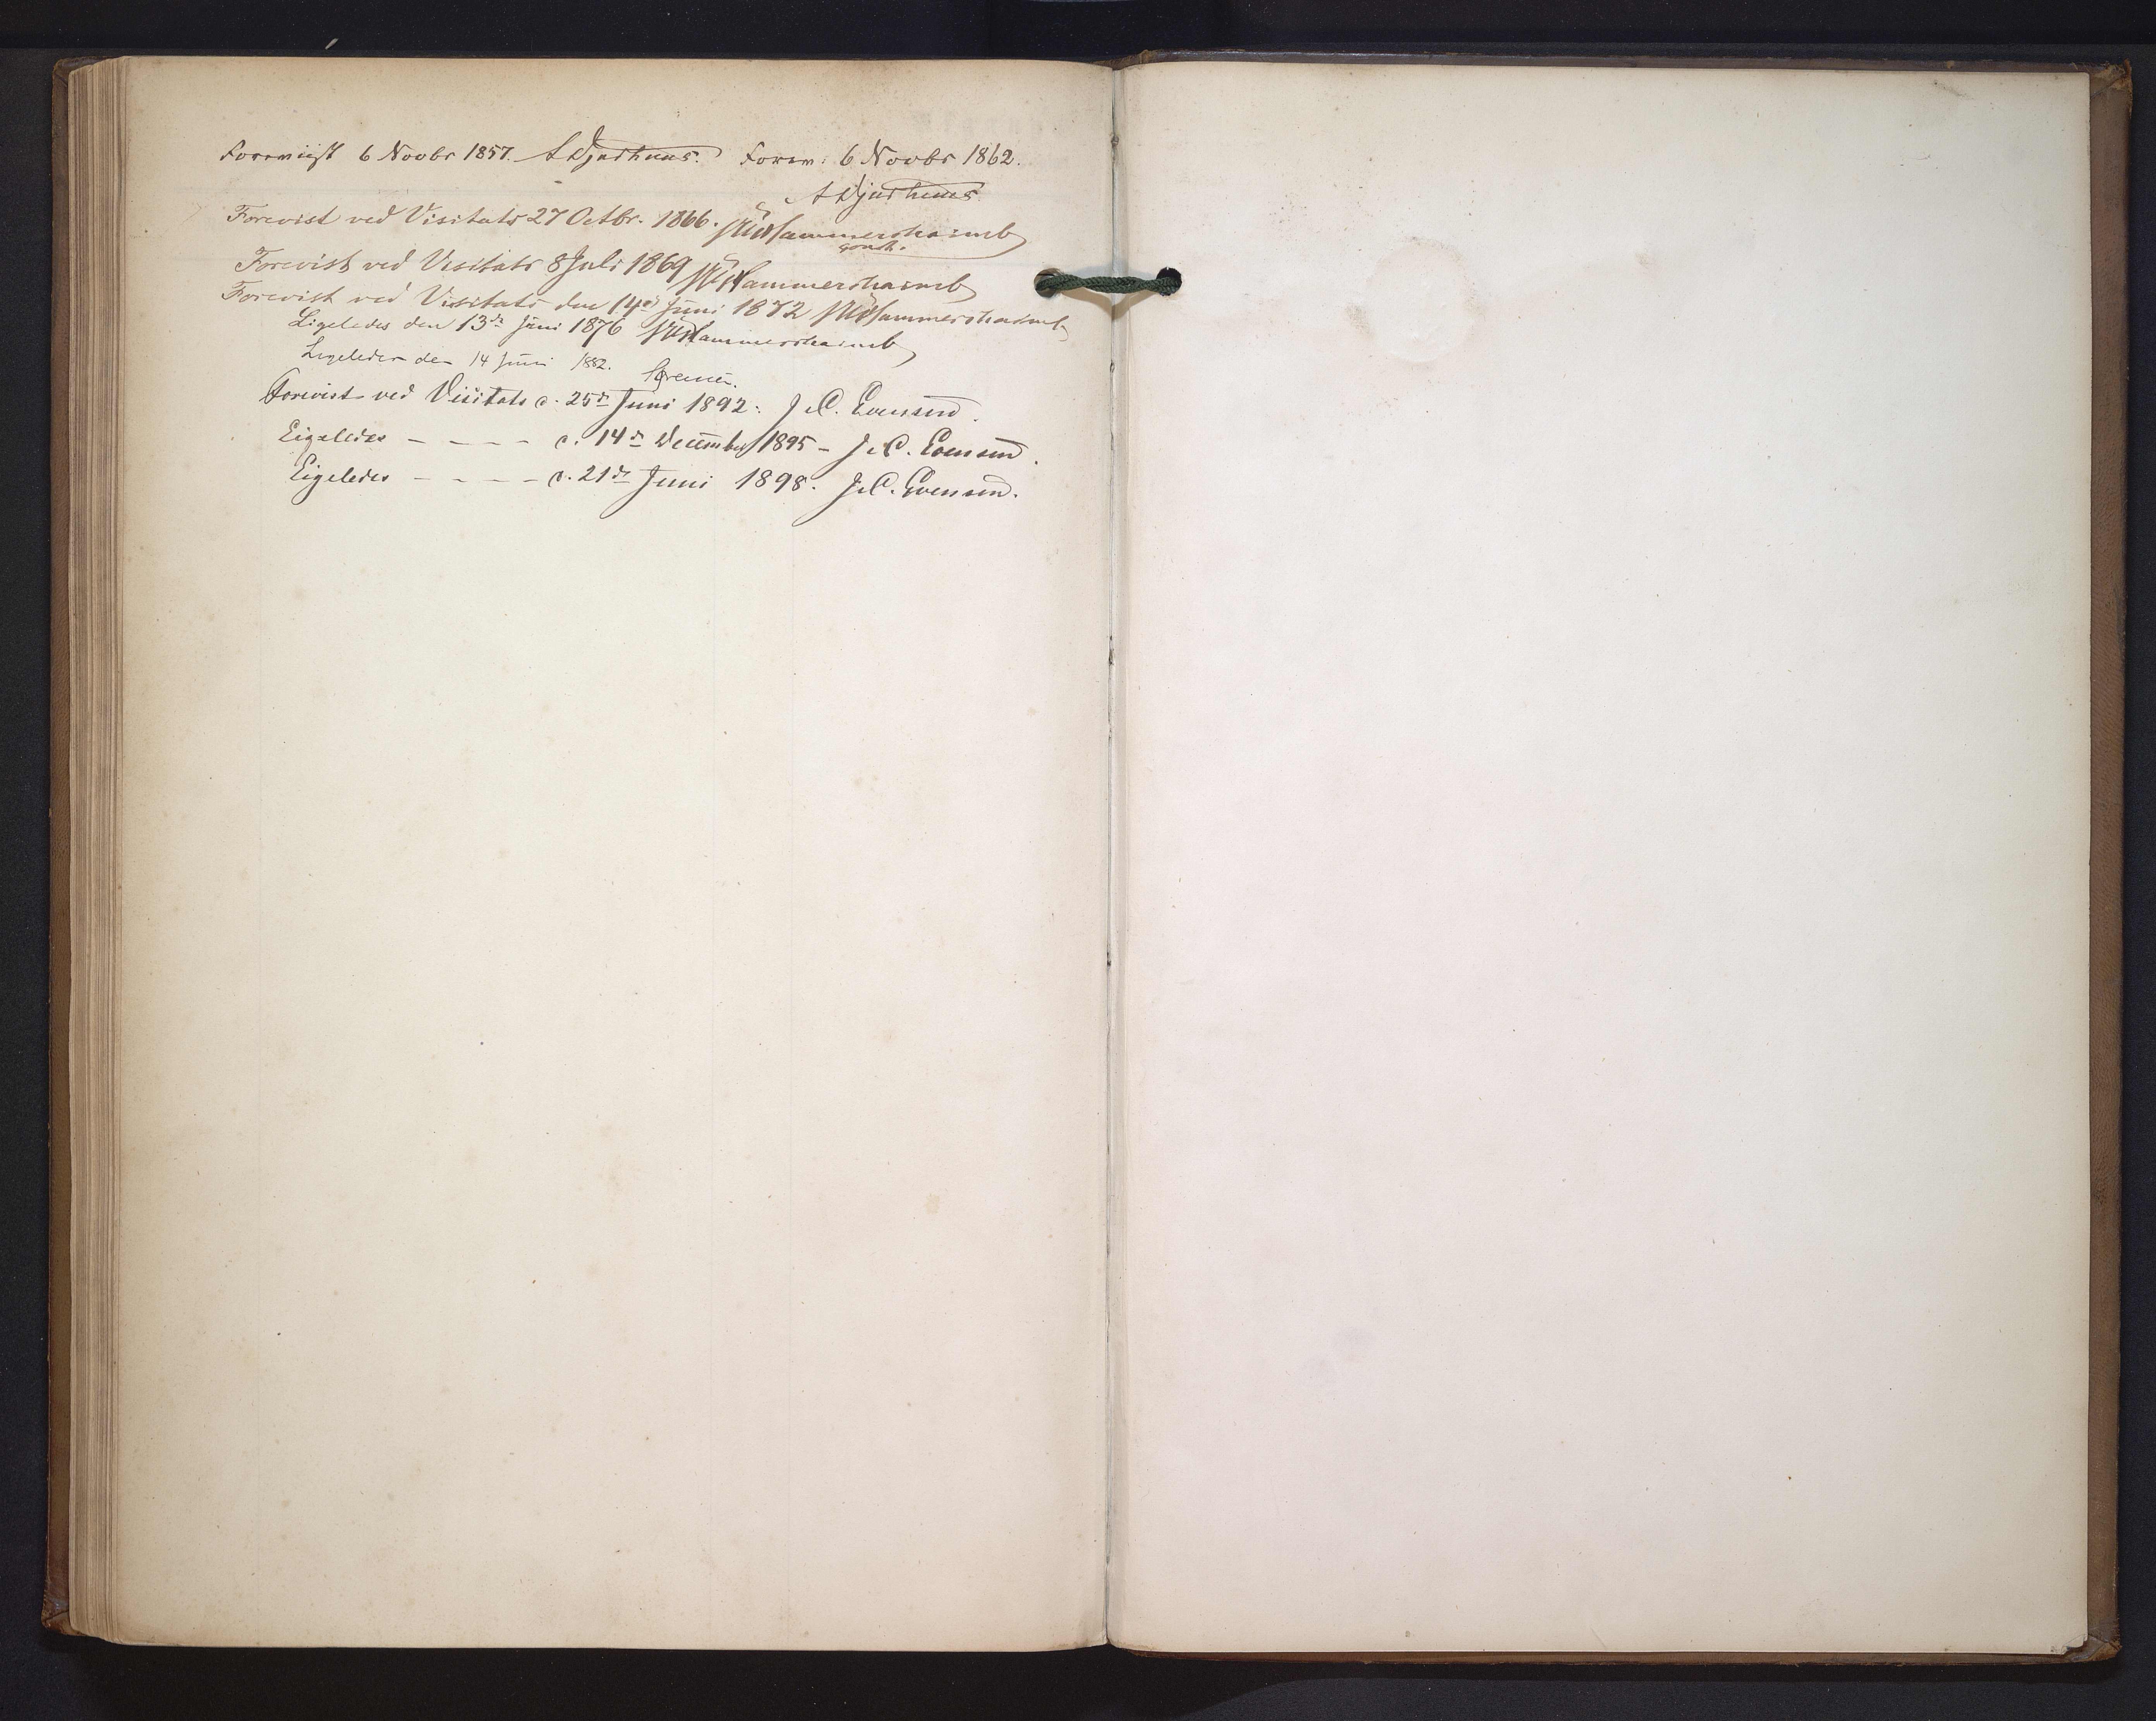 Foreviist 6 Novbr 1857. A Djurhuus. Forev: 6 Novbr 1862.
A Djurhuus
Forevist ved Visitats 27 Octbr. 1866. VUHammershaimb
const.
Forevist ved Visitats 8 Juli 1869 VUHammershaimb
Forevist ved Visitats den 14de Juni 1872 VUHammershaimb
Ligeledes den 13de Juni 1876 VUHammershaimb
Ligeledes den 14 Juni 1882.
Forevist ved Visitats d. 25de Juni 1892. J. C. Evensen.
Ligeledes - - - - d. 14de December 1895 - J. C. Evensen.
Ligeledes - - - - d. 21de Juni 1898. J. C. Evensen.